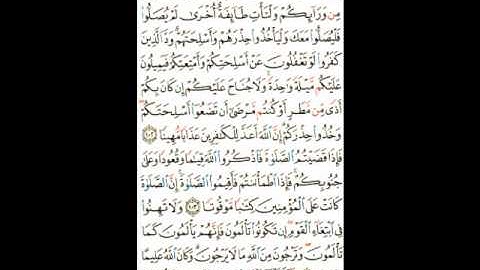 مِن وَرَآئِكُمْ وَلْتَأْتِ طَآئِفَةٌ أُخْرَىٰ لَمْ يُصَلُّوا۟
فَلْيُصَلُّوا۟ مَعَكَ وَلْيَأْخُذُوا۟ حِذْرَهُمْ وَأَسْلِحَتَهُمْ ۗ وَدَّ ٱلَّذِينَ
كَفَرُوا۟ لَوْ تَغْفُلُونَ عَنْ أَسْلِحَتِكُمْ وَأَمْتِعَتِكُمْ فَيَمِيلُونَ
عَلَيْكُم مَّيْلَةً وَٰحِدَةً ۚ وَلَا جُنَاحَ عَلَيْكُمْ إِن كَانَ بِكُمْ
أَذًى مِّن مَّطَرٍ أَوْ كُنتُم مَّرْضَىٰٓ أَن تَضَعُوٓا۟ أَسْلِحَتَكُمْ ۖ
وَخُذُوا۟ حِذْرَكُمْ ۗ إِنَّ ٱللَّهَ أَعَدَّ لِلْكَٰفِرِينَ عَذَابًا مُّهِينًا ١٠٢
فَإِذَا قَضَيْتُمُ ٱلصَّلَوٰةَ فَٱذْكُرُوا۟ ٱللَّهَ قِيَٰمًا وَقُعُودًا وَعَلَىٰ
جُنُوبِكُمْ ۚ فَإِذَا ٱطْمَأْنَنتُمْ فَأَقِيمُوا۟ ٱلصَّلَوٰةَ ۚ إِنَّ ٱلصَّلَوٰةَ
كَانَتْ عَلَى ٱلْمُؤْمِنِينَ كِتَٰبًا مَّوْقُوتًا ١٠٣ وَلَا تَهِنُوا۟
فِى ٱبْتِغَآءِ ٱلْقَوْمِ ۖ إِن تَكُونُوا۟ تَأْلَمُونَ فَإِنَّهُمْ يَأْلَمُونَ كَمَا
تَأْلَمُونَ ۖ وَتَرْجُونَ مِنَ ٱللَّهِ مَا لَا يَرْجُونَ ۗ وَكَانَ ٱللَّهُ عَلِيمًا